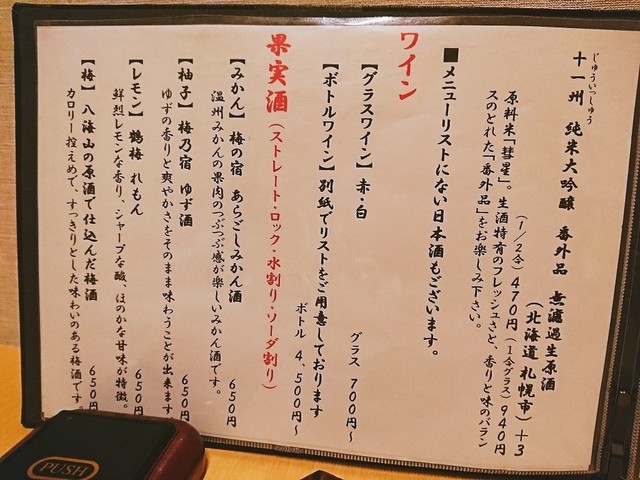 じゅういっしゅう
十一州 純米大吟醸 番外品 無濾過生原酒
(北海道 札幌市) +3
(1/2合) 470円 (1合グラス) 940円
原料米「彗星」。生酒特有のフレッシュさと、香りと味のバラン
スのとれた「番外品」をお楽しみ下さい。
■メニューリストにない日本酒もございます。
ワイン
【グラスワイン】 赤・白 グラス 700円~
【ボトルワイン】 別紙でリストをご用意しております
ボトル 4,500円~
果実酒 (ストレート・ロック・水割り・ソーダ割り)
【みかん】 梅の宿 あらごしみかん酒 650円
温州みかんの果肉のつぶつぶ感が楽しいみかん酒です。
【柚子】 梅乃宿 ゆず酒 650円
ゆずの香りと爽やかさをそのまま味わうことが出来ます
【レモン】 鶴梅 れもん 650円
鮮烈レモンな香り、シャープな酸、ほのかな甘味が特徴。
【梅】 八海山の原酒で仕込んだ梅酒 650円
カロリー控えめで、すっきりとした味わいのある梅酒です。
PUSH